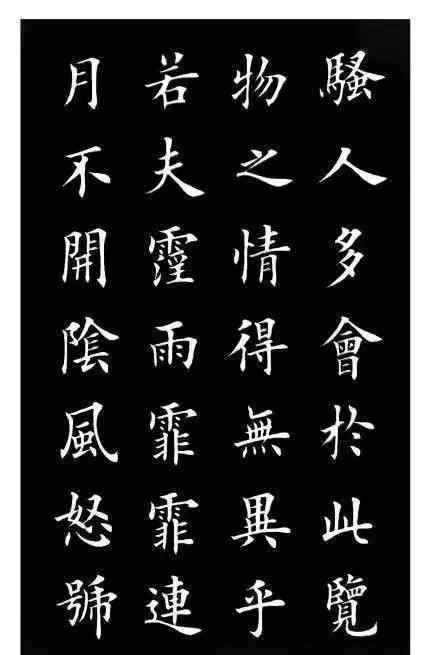 騷人多會於此覽
物之情得無異乎
若夫霪雨霏霏連
月不開陰風怒號